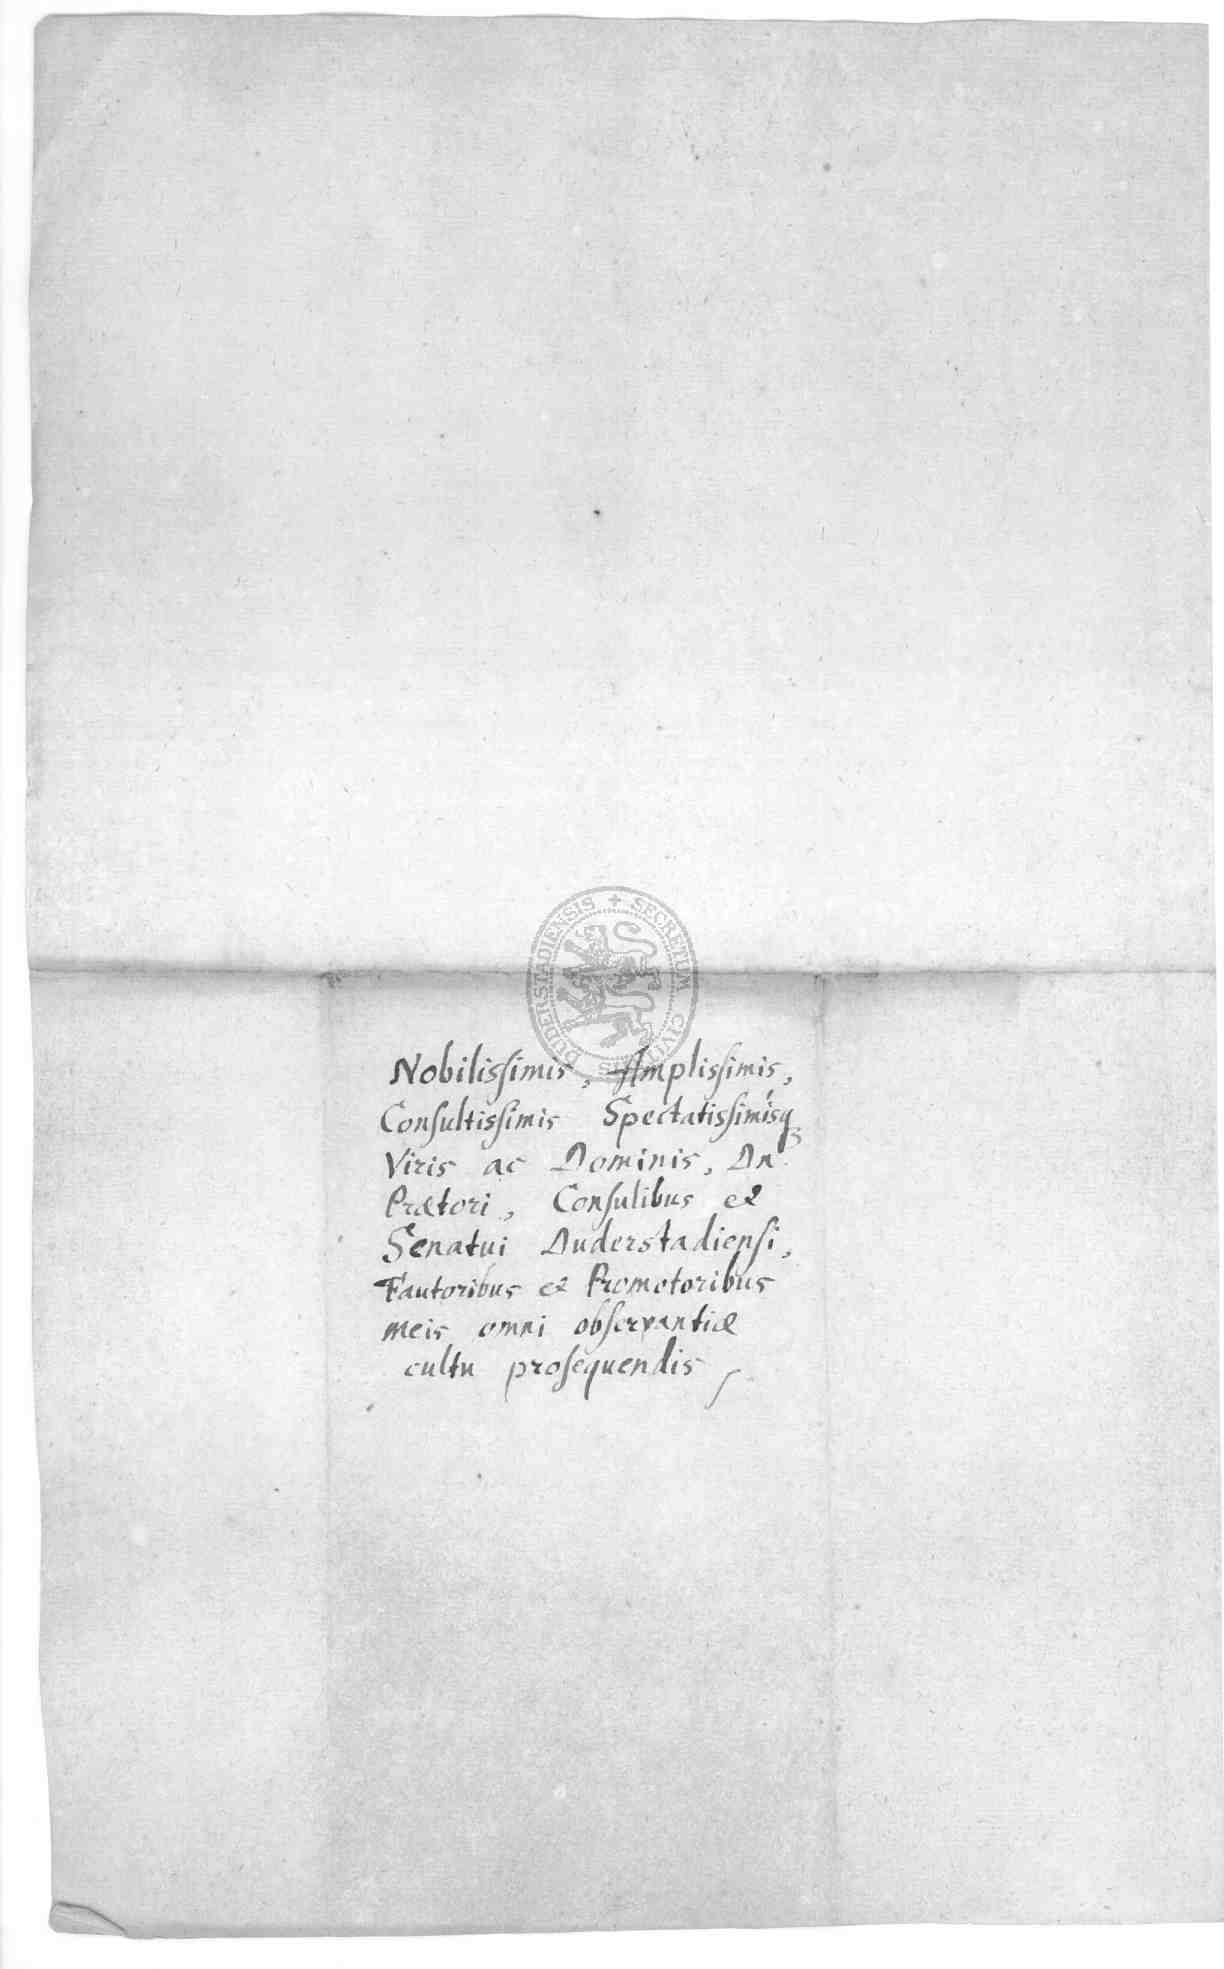 SECRETUM CIVITATIS DUDERSTADIENSIS
Nobilissimis, Amplissimis,
Consultissimis Spectatissimisq₃
Viris ac Dominis, Dn.
Prætori, Consulibus et
Senatui Duderstadiensi,
Fautoribus et Promotoribus
meis omni observantiæ
cultu prosequendis